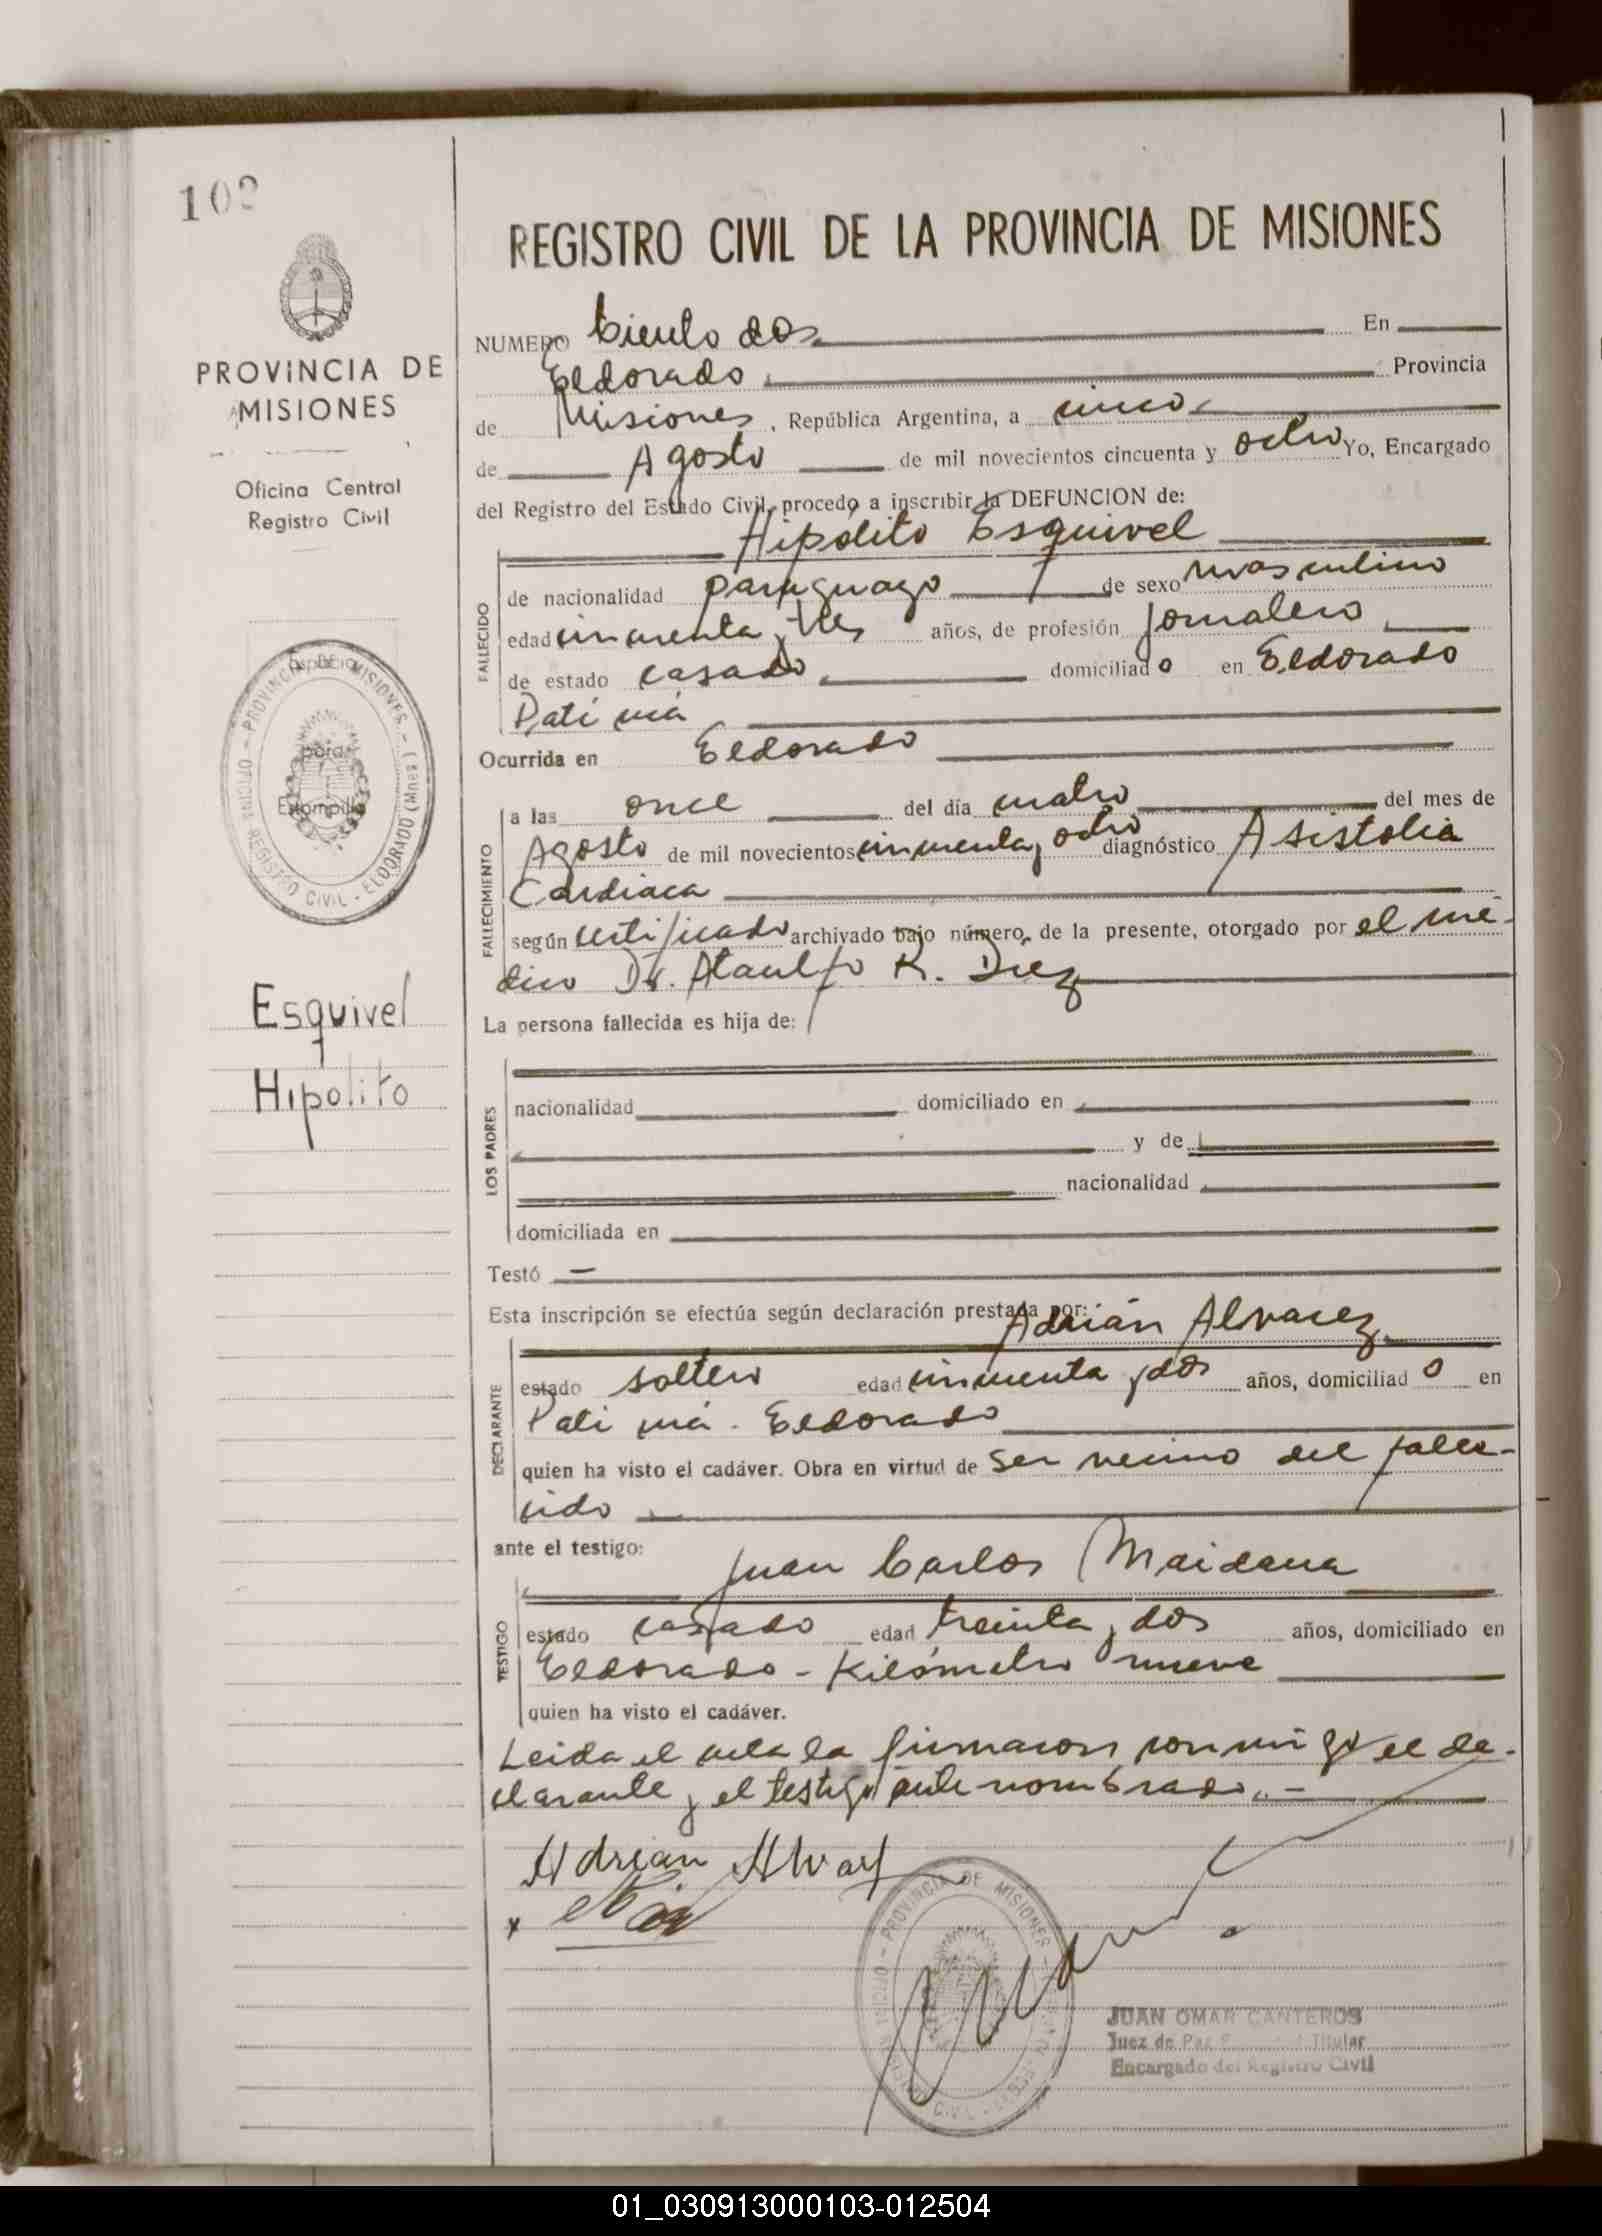 102
REGISTRO CIVIL DE LA PROVINCIA DE MISIONES
PROVINCIA DE
MISIONES
Oficina Central
Registro Civil
Espacio
para
Estampilla
OFICINA REGISTRO CIVIL - ELDORADO (Mnes.) - PROVINCIA DE MISIONES -
Esquivel
Hipolito
NUMERO Ciento dos En
Eldorado Provincia
de Misiones, República Argentina, a cinco
de Agosto de mil novecientos cincuenta y ocho Yo, Encargado
del Registro del Estado Civil, procedo a inscribir la DEFUNCION de:
Hipólito Esquivel
FALLECIDO
de nacionalidad paraguayo de sexo masculino
edad cincuenta y tres años, de profesión Jornalero
de estado casado domiciliado en Eldorado
Patí
Ocurrida en Eldorado
FALLECIMIENTO
a las once del día cuatro del mes de
Agosto de mil novecientos cincuenta y ocho diagnóstico Asistolia
Cardiaca
según certificado archivado bajo número, de la presente, otorgado por el mé-
dico Dr. Ataulfo R. Diez
La persona fallecida es hija de:
LOS PADRES
nacionalidad domiciliado en
y de
nacionalidad
domiciliada en
Testó —
Esta inscripción se efectúa según declaración prestada por: Adrián Alvarez
DECLARANTE
estado soltero edad cincuenta y dos años, domiciliado en
Pati . Eldorado
quien ha visto el cadáver. Obra en virtud de ser vecino del falle-
cido
ante el testigo:
Juan Carlos Maidana
TESTIGO
estado casado edad treinta y dos años, domiciliado en
Eldorado - Kilómetro nueve
quien ha visto el cadáver.
Leida el acta la firmaron conmigo el de-
clarante y el testigo ante nombrado.. -
Adrian Alvar
JUAN OMAR CANTEROS
Juez de Paz Titular
Encargado del Registro Civil
01_030913000103-012504